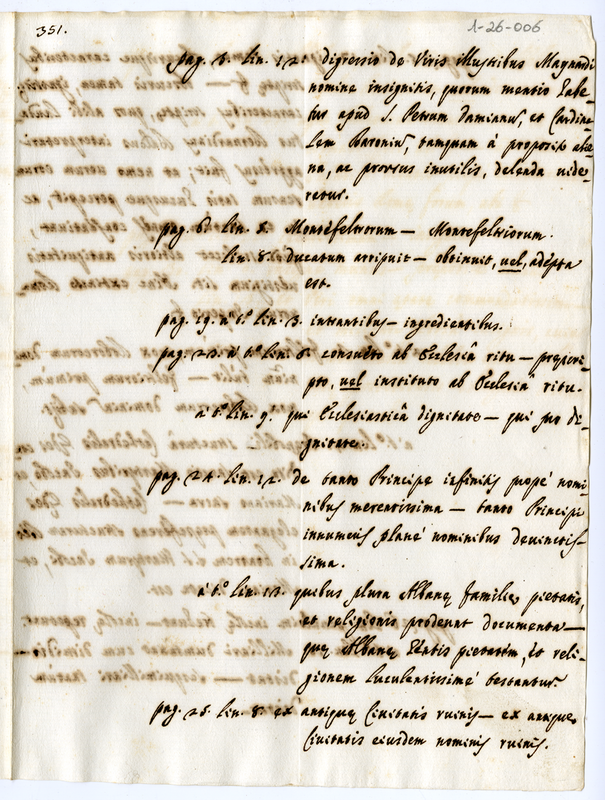 351.
1-26-006
pag. 5. lin. 12. digressio de Viris illustribus Magnardi
nomine insignitis, quorum mentio habe-
tur apud S. Petrum Damianũ, et Cardina-
lem Baroniũ, tamquam à proposito alie-
na, ac prorsus inutilis, delenda vide-
retur.
pag. 6. lin. 5. Montèfeltrorum — Montefeltriorum.
lin. 8. ducatum arripuit — obtinuit, uel, adépta
est.
pag. 19. à t.º lin. 3. intrantibus — ingredientibus.
pag. 23. à t.º lin. 6. consuéto ab Ecclesiâ ritu — prescri-
pto, uel instituto ab Ecclesiâ ritu.
à t.º lin. 9. qui Ecclesiasticâ dignitate — qui pro di-
gnitate.
pag. 24. lin. 12. de tanto Principe infinitis propé nomi-
nibus merentissima — tanto Principi
innumeris planè nominibus devinctis-
sima.
à t.º lin. 13. quibus plura Albanę familię pietatis,
et religionis prodeunt documenta —
quę Albanę Gentis pietatem, et reli-
gionem luculentissimè testantur.
pag. 25. lin. 8. ex antiquę Civitatis ruinis — ex antiquę
Civitatis eiusdem nominis ruinis.